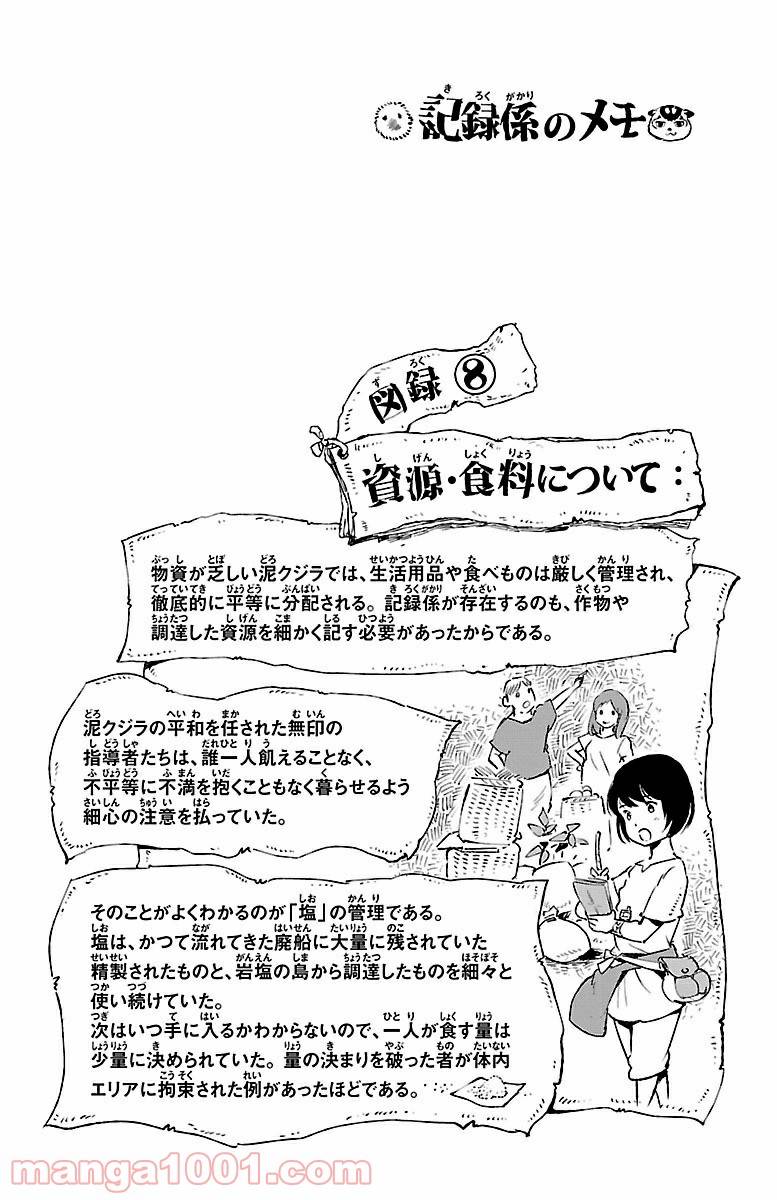 記録係のメモ
図録⑧
資源・食料について：
物資が乏しい泥クジラでは、生活用品や食べものは厳しく管理され、
徹底的に平等に分配される。記録係が存在するのも、作物や
調達した資源を細かく記す必要があったからである。
泥クジラの平和を任された無印の
指導者たちは、誰一人飢えることなく、
不平等に不満を抱くこともなく暮らせるよう
細心の注意を払っていた。
そのことがよくわかるのが「塩」の管理である。
塩は、かつて流れてきた廃船に大量に残されていた
精製されたものと、岩塩の島から調達したものを細々と
使い続けていた。
次はいつ手に入るかわからないので、一人が食す量は
少量に決められていた。量の決まりを破った者が体内
エリアに拘束された例があったほどである。
manga1001.com